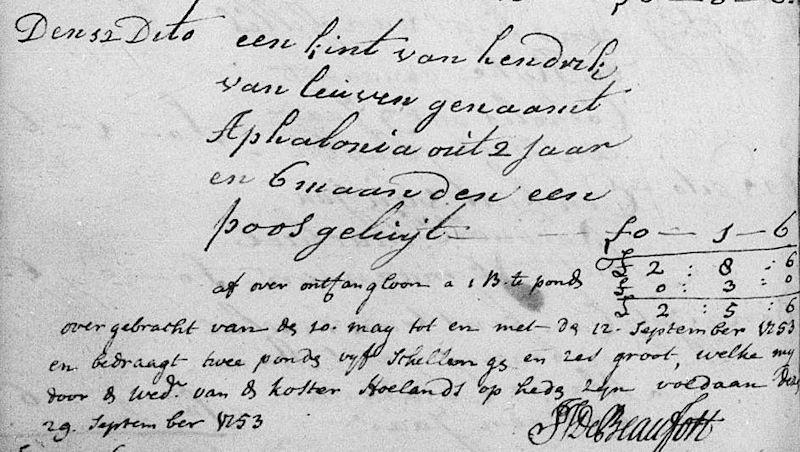 Den 12 Dito een kint van hendrik
van leuven genaamt
Aphalonia out 2 Jaar
en 6 maanden een
poos geluijt £0 — 1 — 6
£ 2 : 8 : 6
af over ontfangloon a 1 B. te pond £ 0 : 3 : 0
£ 2 : 5 : 6
overgebracht van de 10. may tot en met de 12. September 1753
en bedraagt twee ponde vijf Schellengs en zes groot, welke my
door de wedr. van de koster Hoelands op hede zyn voldaan Deze
29. September 1753
DeBeaufort